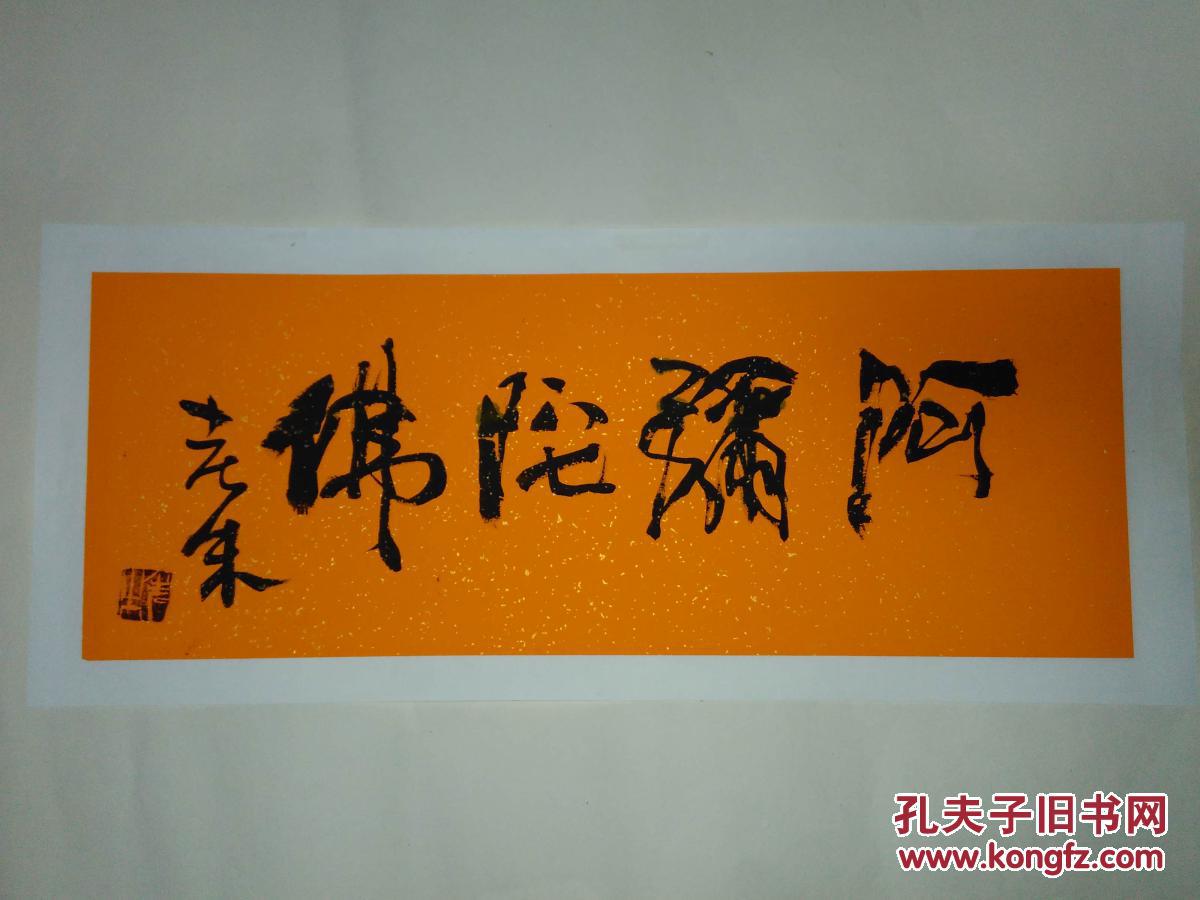 阿彌陀佛
老朱
孔夫子旧书网
www.kongfz.com